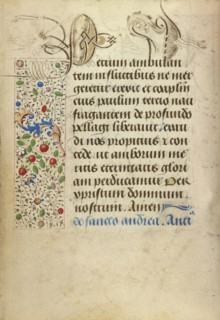 Petrum ambulan
tem in fluctibus ne mer
geretur erexit et coaplm
eius paulum tercio nau
fragantem de profundo
pellagi liberauit exau
di nos propitius et con
cede ut amborum me
ritis eternitatis glori
am perducamur Per
xpristum dominum
nostrum. Amen
de sancto andrea. Anti